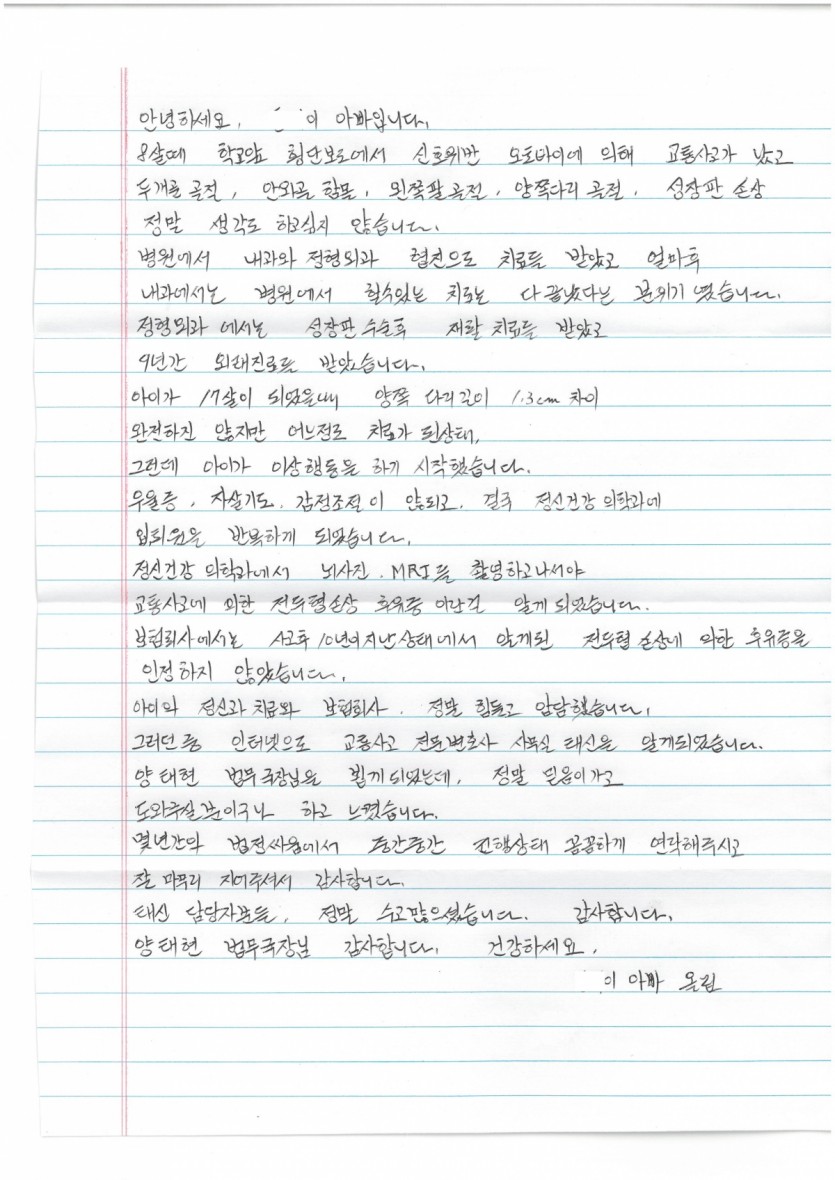 안녕하세요. 이 아빠입니다.
8살때 학교앞 횡단보도에서 신호위반 오토바이에 의해 교통사고가 났고
두개골 골절, 안와골 함몰, 왼쪽팔 골절, 양쪽다리 골절, 성장판 손상
정말 생각도 하고싶지 않습니다.
병원에서 내과와 정형외과 협진으로 치료를 받았고 얼마후
내과에서는 병원에서 할수있는 치료는 다끝났다는 분위기 였습니다.
정형외과 에서는 성장판 수술후 재활 치료를 받았고
9년간 외래진료를 받았습니다.
아이가 17살이 되었을때 양쪽 다리길이 1.3cm 차이
완전하진 않지만 어느정도 치료가 된상태,
그런데 아이가 이상행동을 하기 시작했습니다.
우울증, 자살기도, 감정조절이 않되고, 결국 정신건강 의학과에
입퇴원을 반복하게 되었습니다.
정신건강 의학과에서 뇌사진. MRI를 촬영하고나서야
교통사고에 의한 전두엽손상 후유증 이란걸 알게 되었습니다.
보험회사에서는 사고후 10년이지난상태에서 알게된 전두엽 손상에 의한 후유증을
인정하지 않았습니다.
아이의 정신과 치료와 보험회사. 정말 힘들고 암담했습니다.
그러던중 인터넷으로 교통사고 전문변호사 사무실 태신을 알게되었습니다.
양태현 법무국장님을 뵙게되었는데, 정말 믿음이가고
도와주실분이구나 하고 느꼈습니다.
몇년간의 법정싸움에서 중간중간 진행상태 꼼꼼하게 연락해주시고
잘 마무리 지어주셔서 감사합니다.
태신 담당자분들, 정말 수고많으셨습니다. 감사합니다.
양태현 법무국장님 감사합니다. 건강하세요.
이 아빠 올림